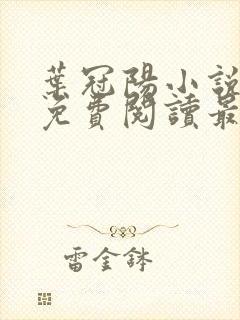 葉冠陽小說
免費閱讀最
雷金鉢